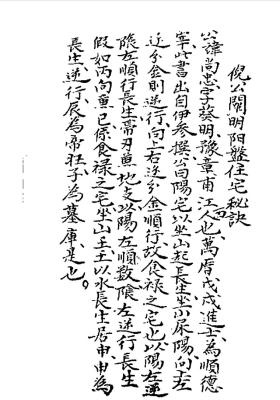 倪公闢明陽盤住宅秘訣
公諱尚忠字葵明豫章甫江人也萬曆戊戌進士為順德
宰此書出自伊參撰公曰陽宅以坐山起長生坐小尿陽向左
迄分金則逆行向上右迄分金順行故食祿之宅也以陽右逆
陰左順行長生帝刃煞地支以陽左順數陰左逆行長生
假如丙向重已係食祿之宅坐山壬壬以水長生居申申為
長生逆行辰為帝狂子為墓庫是也。